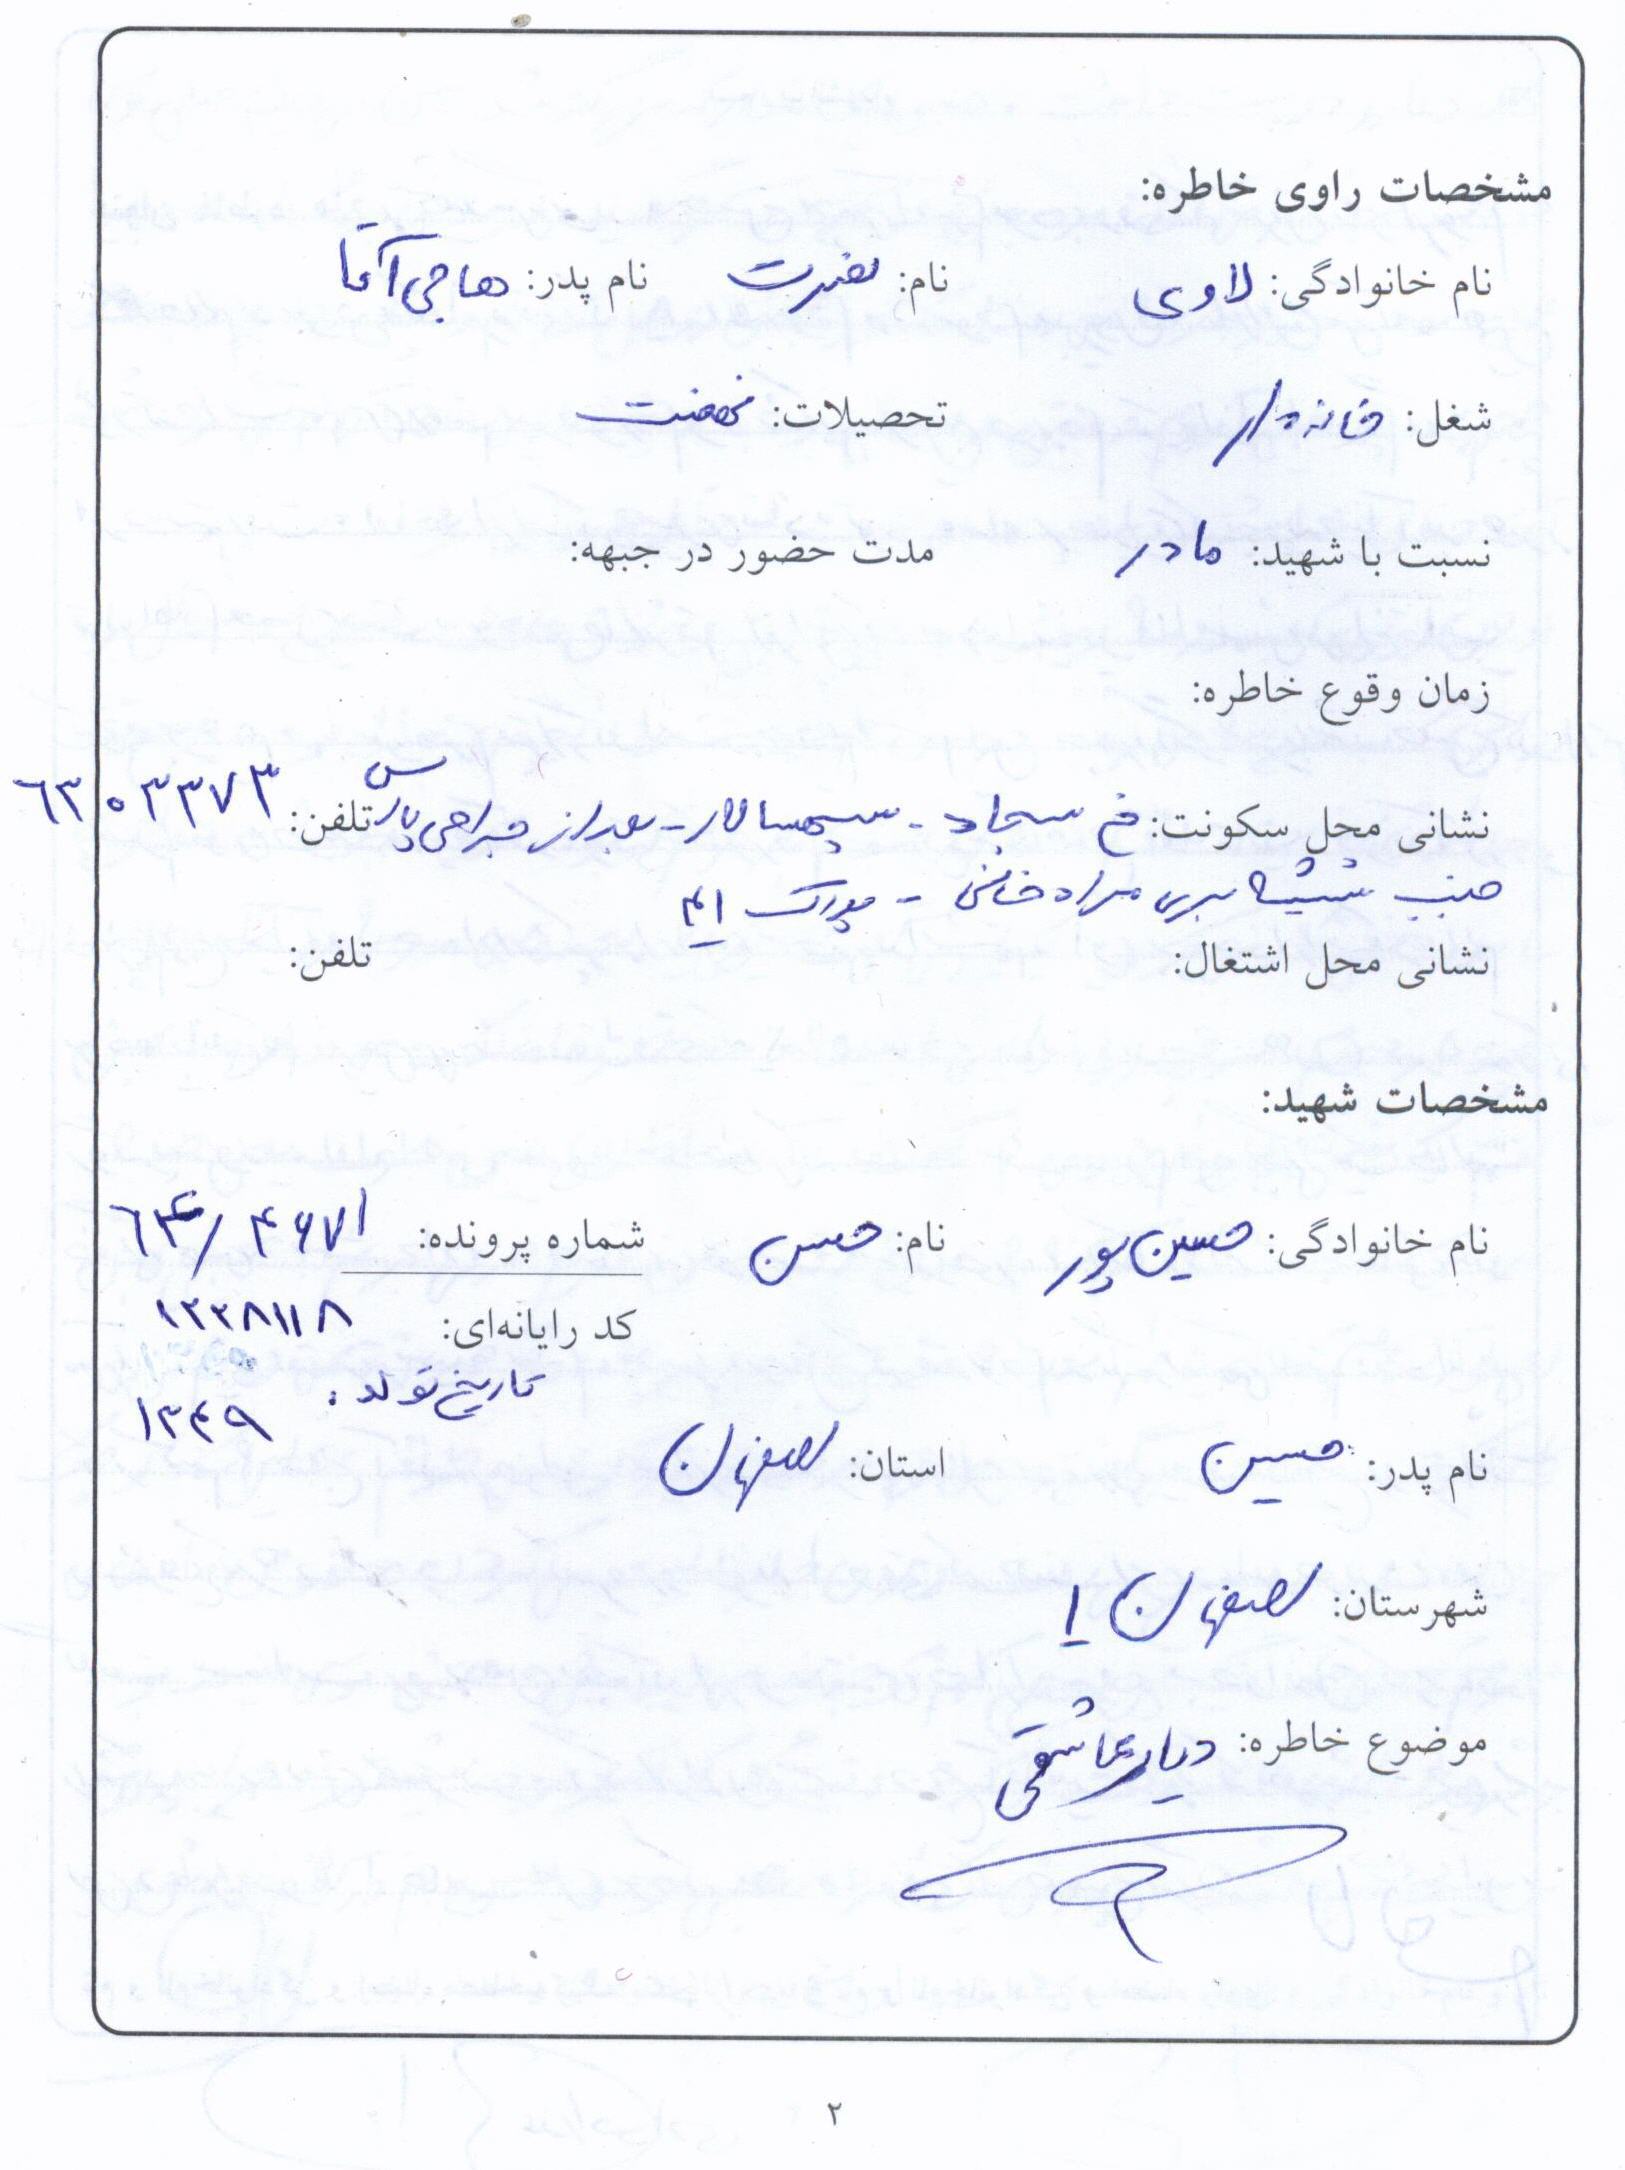 مشخصات راوی خاطره:
نام خانوادگی: لاوی نام: نصرت نام پدر: حاجی آقا
شغل: خانه دار تحصیلات: نهضت
نسبت با شهید: مادر مدت حضور در جبهه:
زمان وقوع خاطره:
نشانی محل سکونت: خ سجاد - سپهسالار - بعد از جراحی پارس تلفن: ۶۳۰۳۳۷۳
جنب شیشه بری مرادخانی - پلاک ۴۱
نشانی محل اشتغال: تلفن:
مشخصات شهید:
نام خانوادگی: حسین پور نام: حسن شماره پرونده: ۶۴/۴۶۷۱
کد رایانه‌ای: ۱۲۲۸۱۱۸
تاریخ تولد: ۱۳۴۹
نام پدر: حسین استان: اصفهان
شهرستان: اصفهان ۱
موضوع خاطره: دیار عاشقی
۲